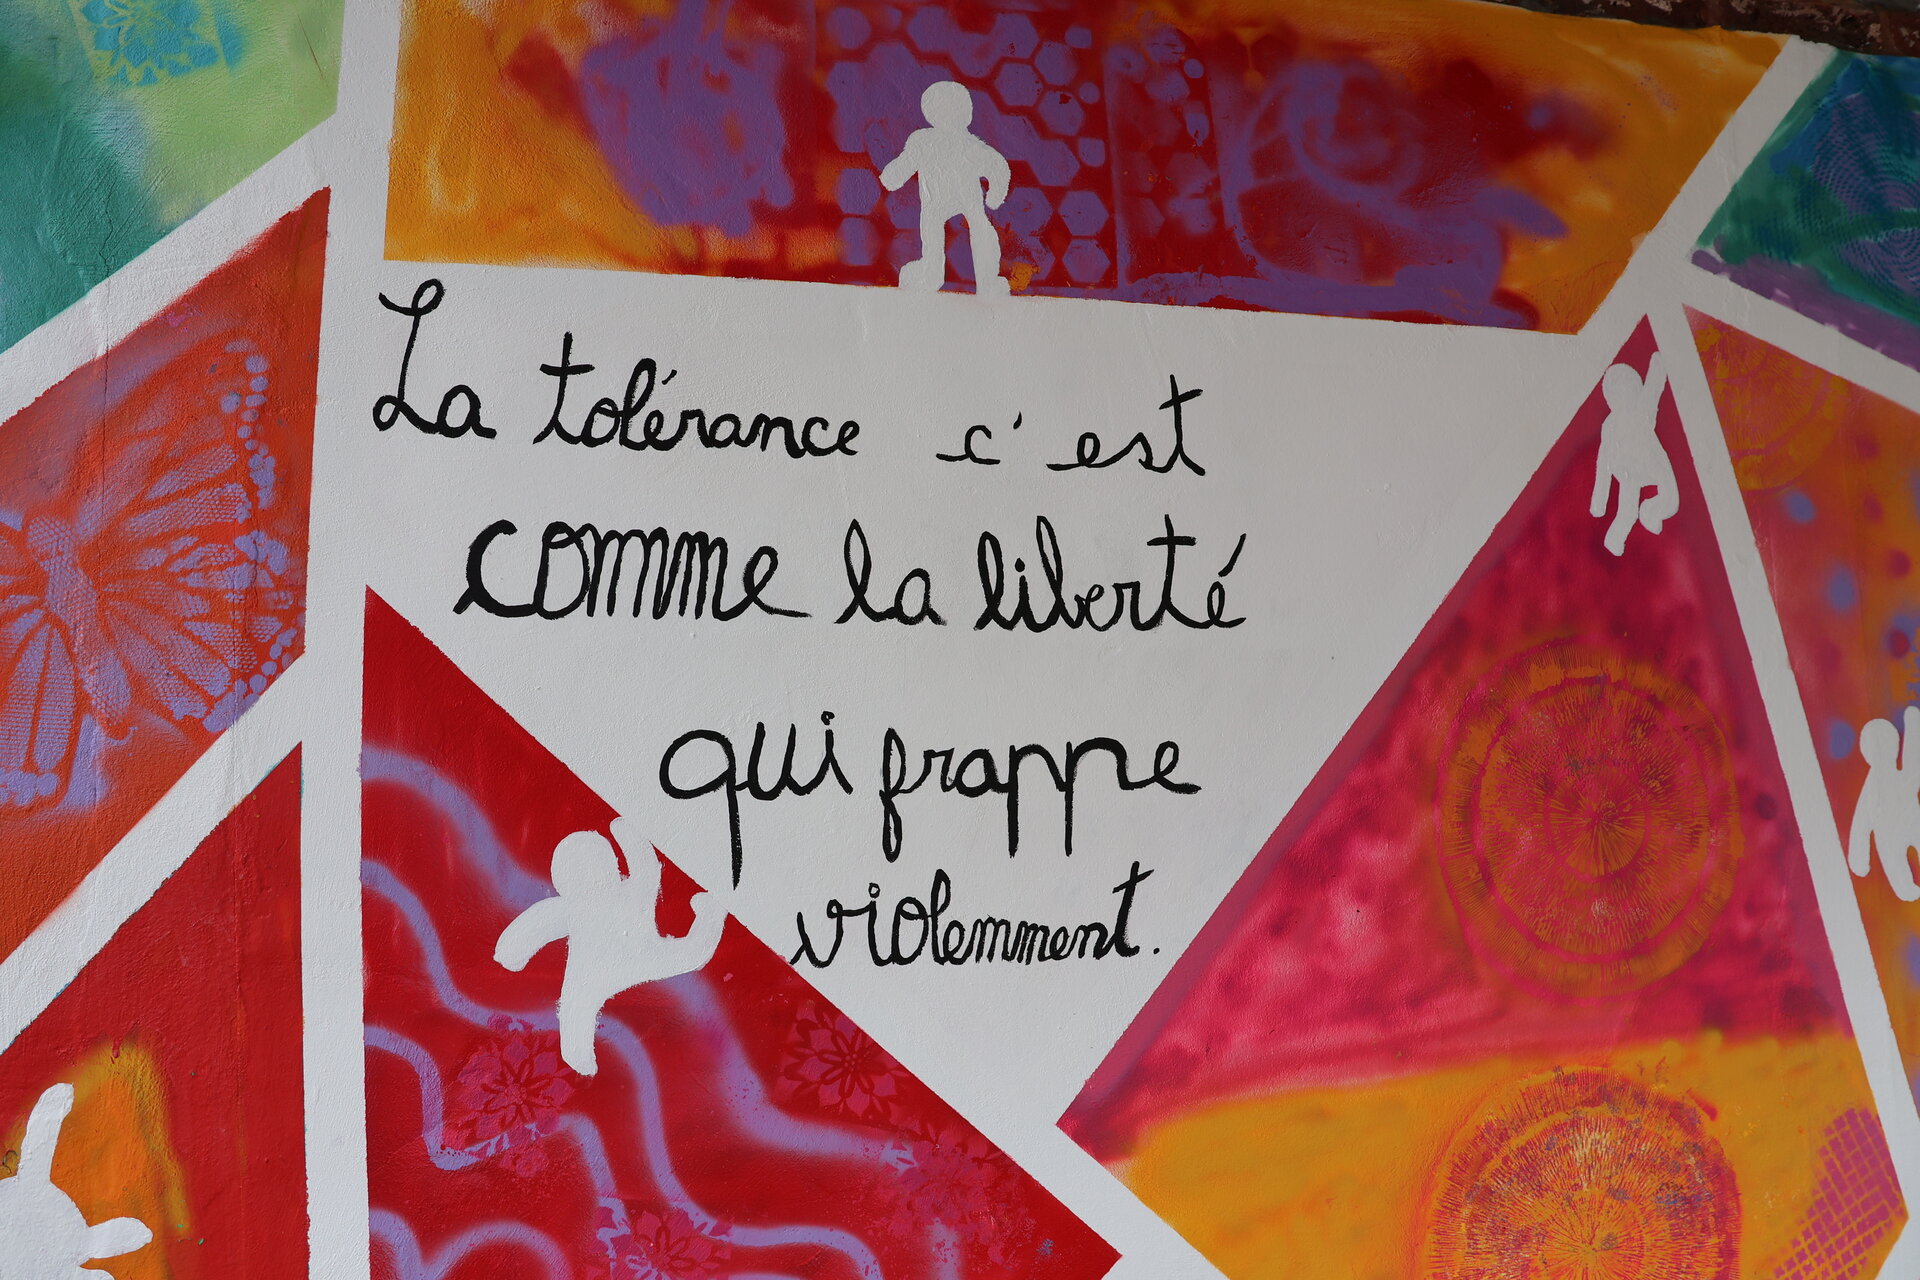 La tolérance c'est
comme la liberté
qui frappe
violemment.